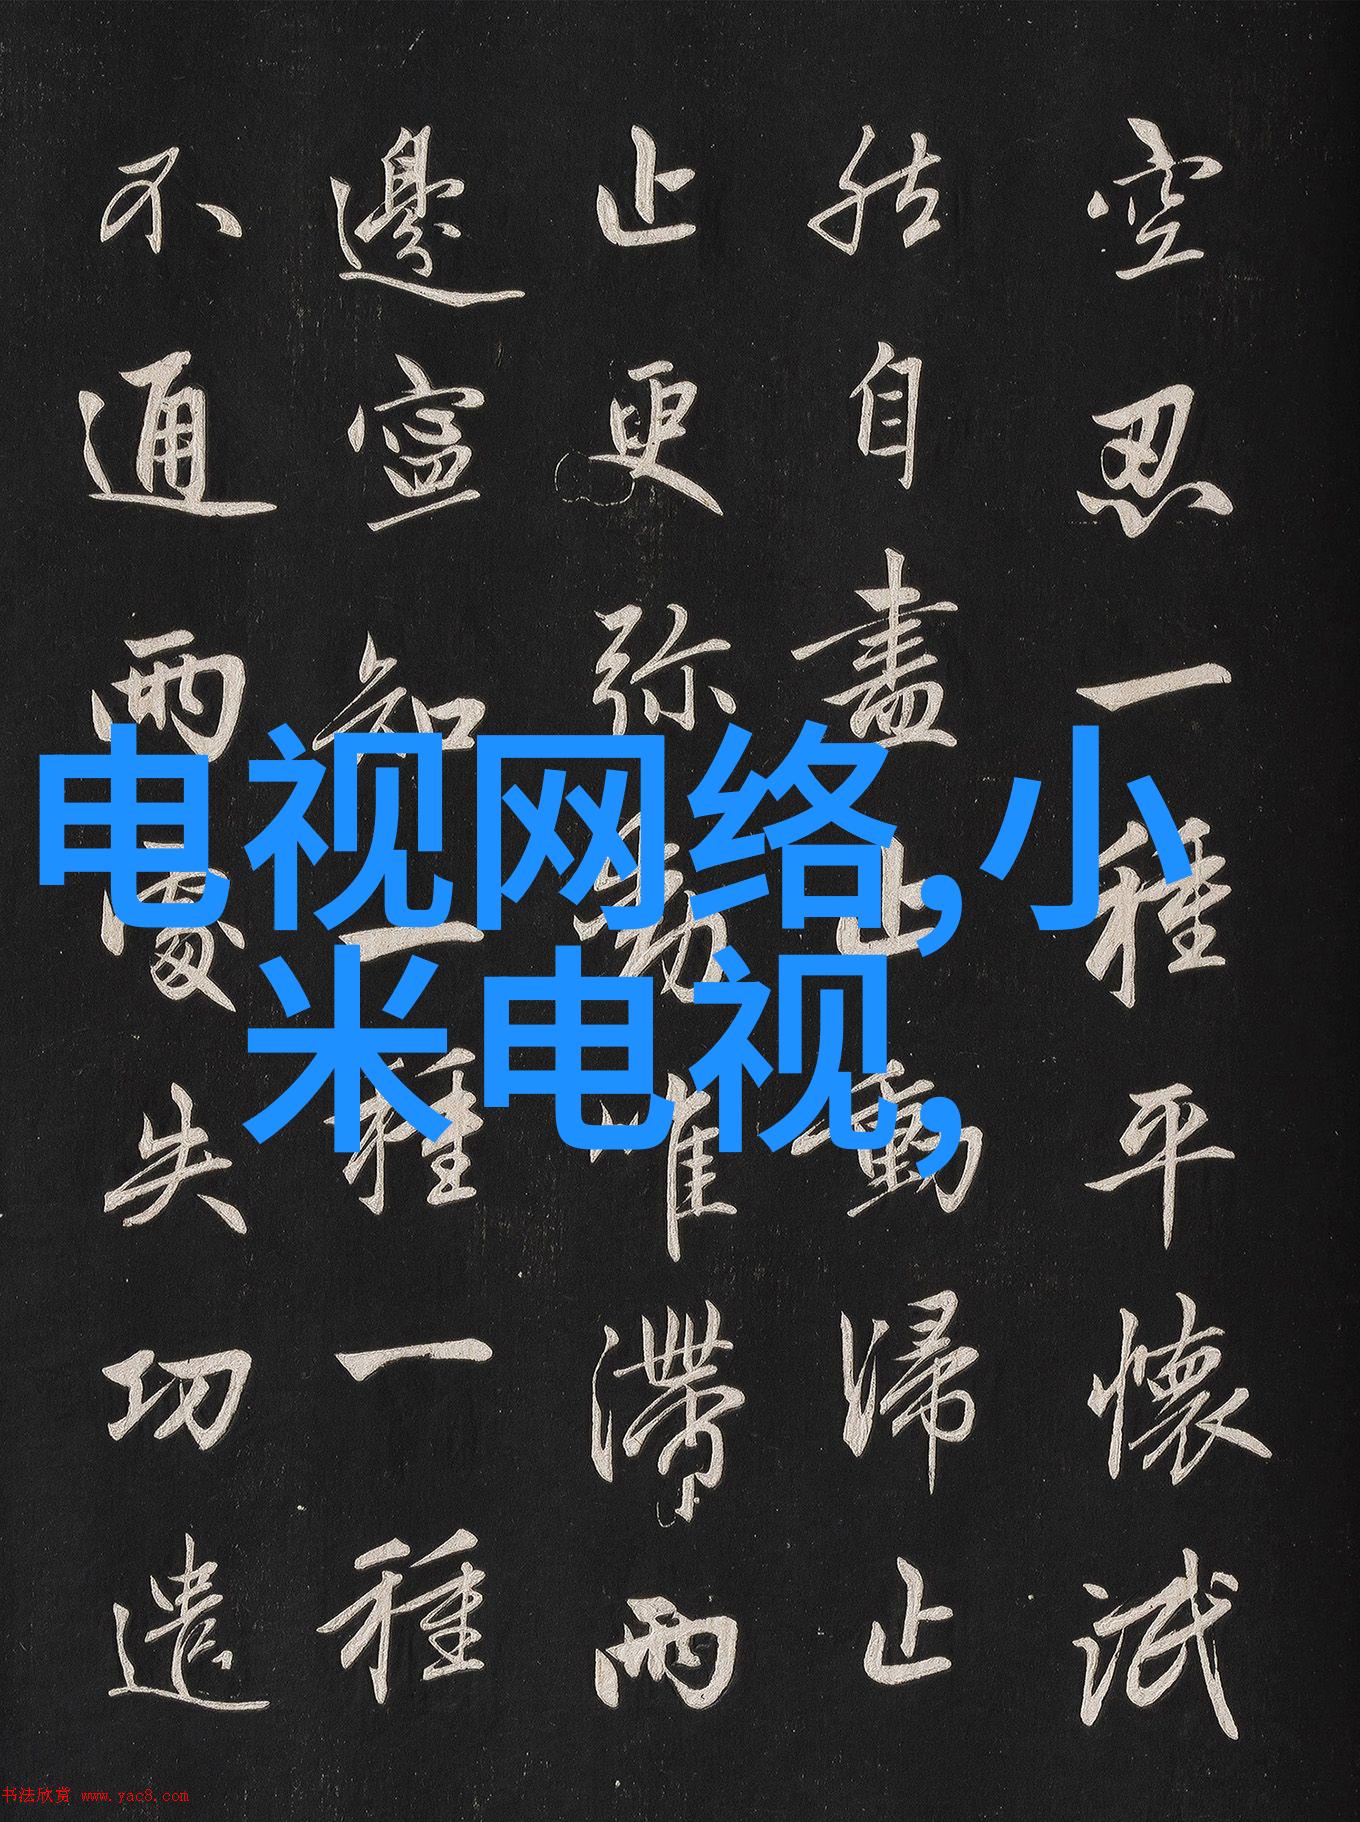 空忍一種平懷泯
然自盡止動歸止
止更弥動唯滯兩
邊寧知一種一種
不通兩處失功遣
电视网络,小
米电视,
书法欣赏 www.yac8.com